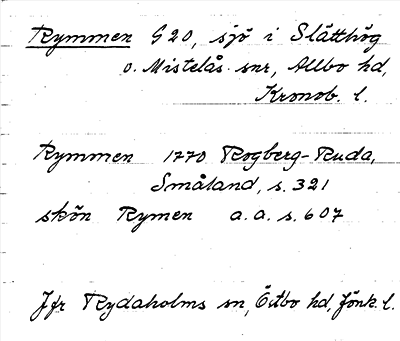 Rymmen G20, sjö i Slätthög
o. Mistelås snr, Allbo hd,
Kronob. l.
Rymmen 1770 Rogberg-Ruda,
Småland, s. 321
skön Rymen a.a. s. 607
Jfr Rydaholms sn, Östbo hd, Jönk. l.